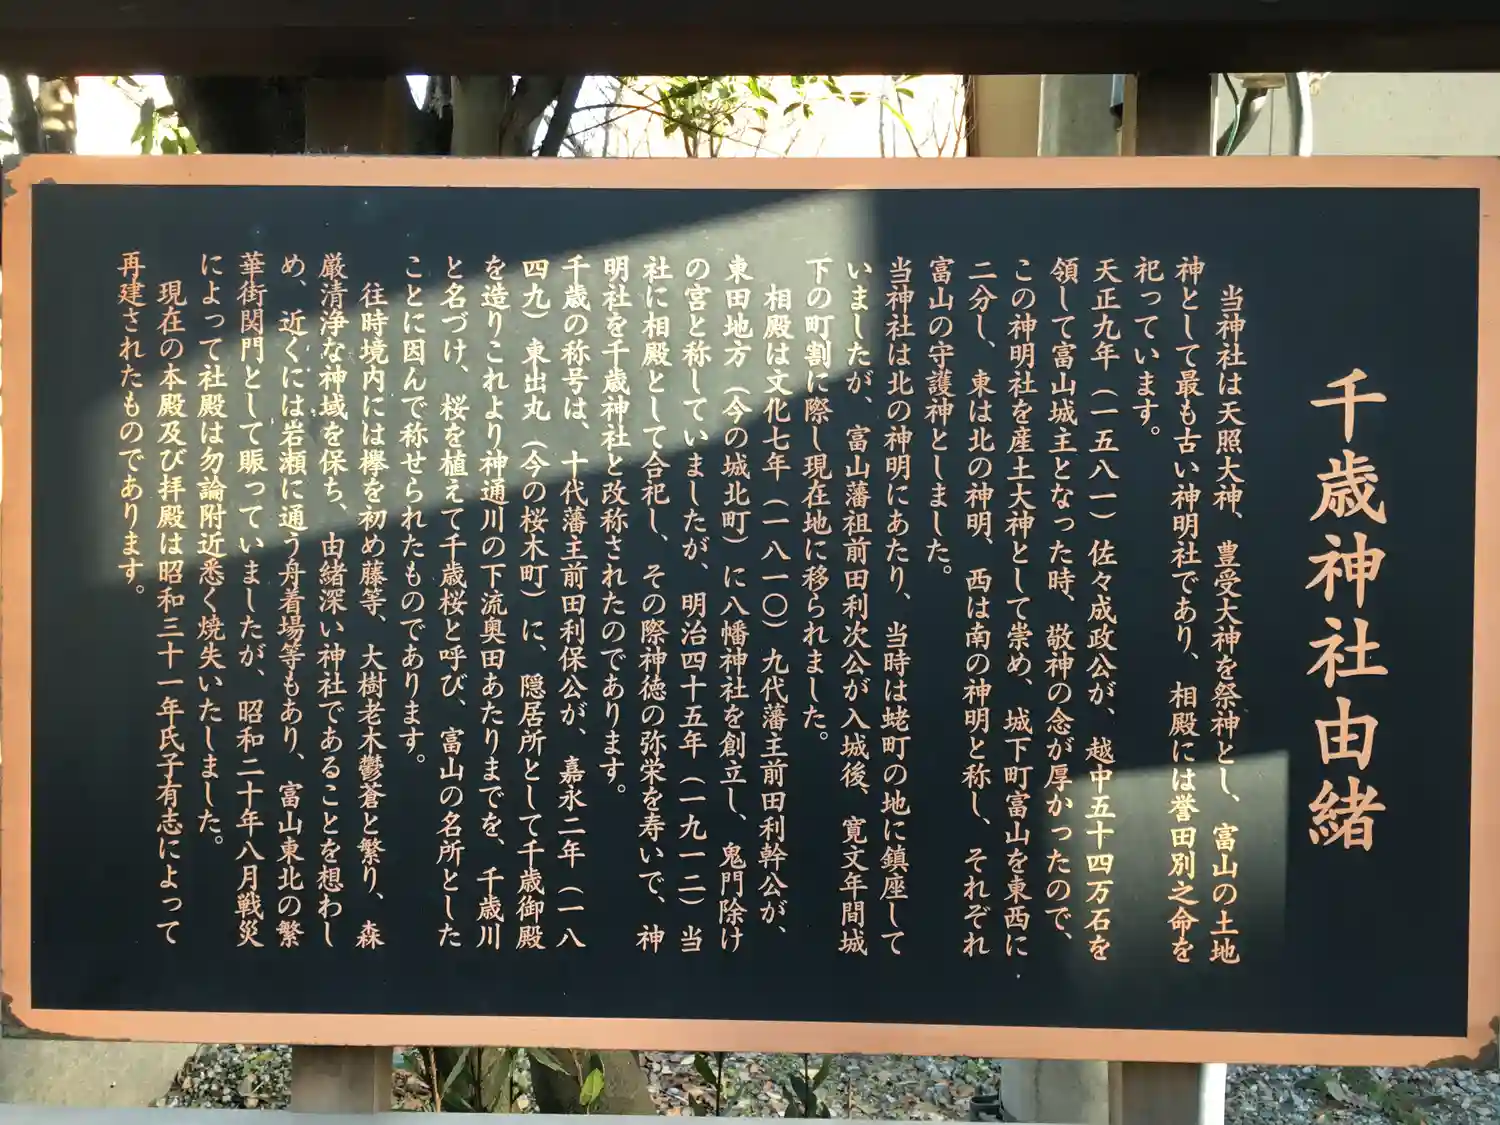 千歳神社由緒
当神社は天照大神、豊受大神を祭神とし、富山の土地
神として最も古い神明社であり、相殿には誉田別之命を
祀っています。
天正九年（一五八一）佐々成政公が、越中五十四万石を
領して富山城主となった時、敬神の念が厚かったので、
この神明社を産土大神として崇め、城下町富山を東西に
二分し、東は北の神明、西は南の神明と称し、それぞれ
富山の守護神としました。
当神社は北の神明にあたり、当時は蛯町の地に鎮座して
いましたが、富山藩祖前田利次公が入城後、寛文年間城
下の町割に際し現在地に移られました。
相殿は文化七年（一八一〇）九代藩主前田利幹公が、
東田地方（今の城北町）に八幡神社を創立し、鬼門除け
の宮と称していましたが、明治四十五年（一九一二）当
社に相殿として合祀し、その際神徳の弥栄を寿いで、神
明社を千歳神社と改称されたのであります。
千歳の称号は、十代藩主前田利保公が、嘉永二年（一八
四九）東出丸（今の桜木町）に、隠居所として千歳御殿
を造りこれより神通川の下流奥田あたりまでを、千歳川
と名づけ、桜を植えて千歳桜と呼び、富山の名所とした
ことに因んで称せられたものであります。
往時境内には欅を初め藤等、大樹老木鬱蒼と繁り、森
厳清浄な神域を保ち、由緒深い神社であることを想わし
め、近くには岩瀬に通う舟着場等もあり、富山東北の繁
華街関門として賑っていましたが、昭和二十年八月戦災
によって社殿は勿論附近悉く焼失いたしました。
現在の本殿及び拝殿は昭和三十一年氏子有志によって
再建されたものであります。